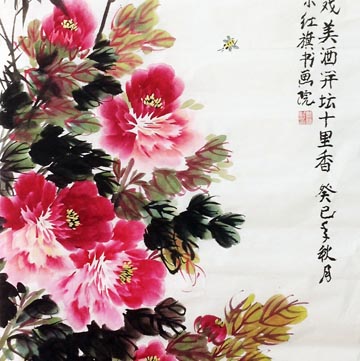 戏美酒开坛十里香 癸巳年秋月
红旗书画院